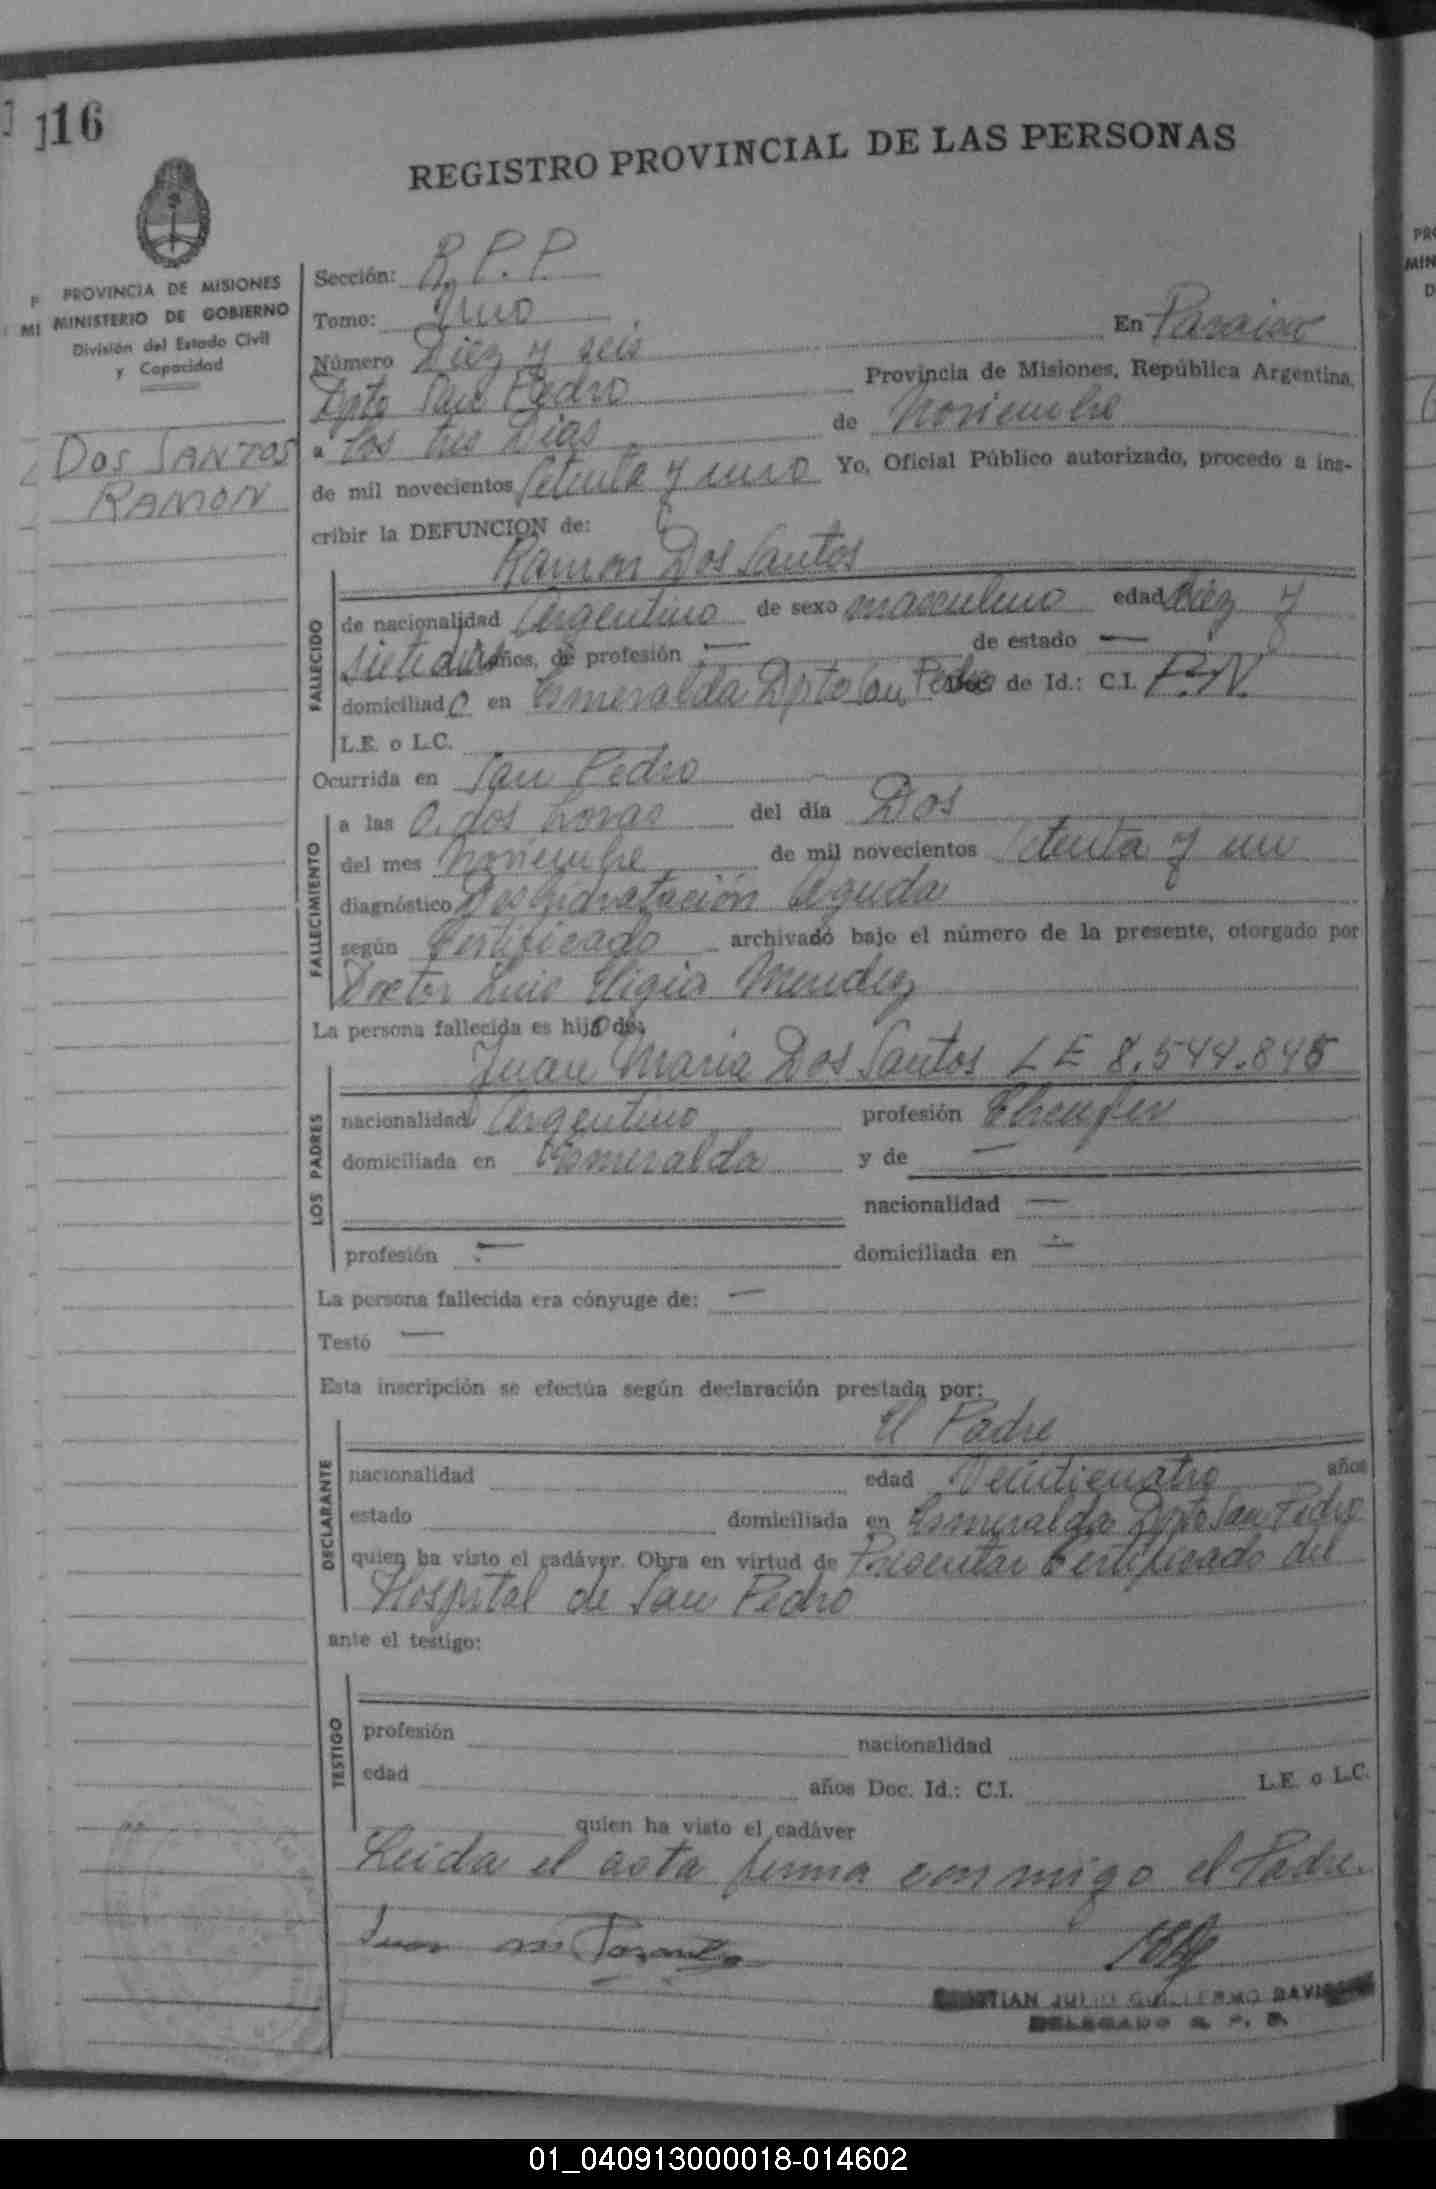 116
REGISTRO PROVINCIAL DE LAS PERSONAS
PROVINCIA DE MISIONES
MINISTERIO DE GOBIERNO
División del Estado Civil
y Capacidad
DOS SANTOS
RAMON
Sección: R.P.P.
Tomo: Uno
Número Diez y seis En Paraiso
Dpto San Pedro Provincia de Misiones, República Argentina,
a los tres Dias de Noviembre
de mil novecientos setenta y uno Yo, Oficial Público autorizado, procedo a ins-
cribir la DEFUNCION de:
Ramon Dos Santos
FALLECIDO
de nacionalidad Argentino de sexo masculino edad Diez y
siete dias años, de profesión — de estado —
domiciliado en Esmeralda Dpto San Pedro Doc. de Id.: C.I. P.N.
L.E. o L.C.
Ocurrida en San Pedro
FALLECIMIENTO
a las 0. dos horas del día Dos
del mes Noviembre de mil novecientos setenta y un
diagnóstico Deshidratación Aguda
según Certificado archivado bajo el número de la presente, otorgado por
Doctor Luis Eligio Mendez
La persona fallecida es hijo de:
Juan Maria Dos Santos LE 8.544.845
LOS PADRES
nacionalidad Argentino profesión
domiciliada en Esmeralda y de —
nacionalidad —
profesión — domiciliada en —
La persona fallecida era cónyuge de: —
Testó —
Esta inscripción se efectúa según declaración prestada por:
El Padre
DECLARANTE
nacionalidad edad Veinticuatro años
estado domiciliada en Esmeralda Dpto San Pedro
quien ha visto el cadáver. Obra en virtud de Presentar Certificado del
Hospital de San Pedro
ante el testigo:
TESTIGO
profesión nacionalidad
edad años Doc. Id.: C.I. L.E. o L.C.
quien ha visto el cadáver
Leida el acta firma conmigo el Padre.
Juan
JULIO GUILLERMO
DELEGADO R. P. P.
01_040913000018-014602